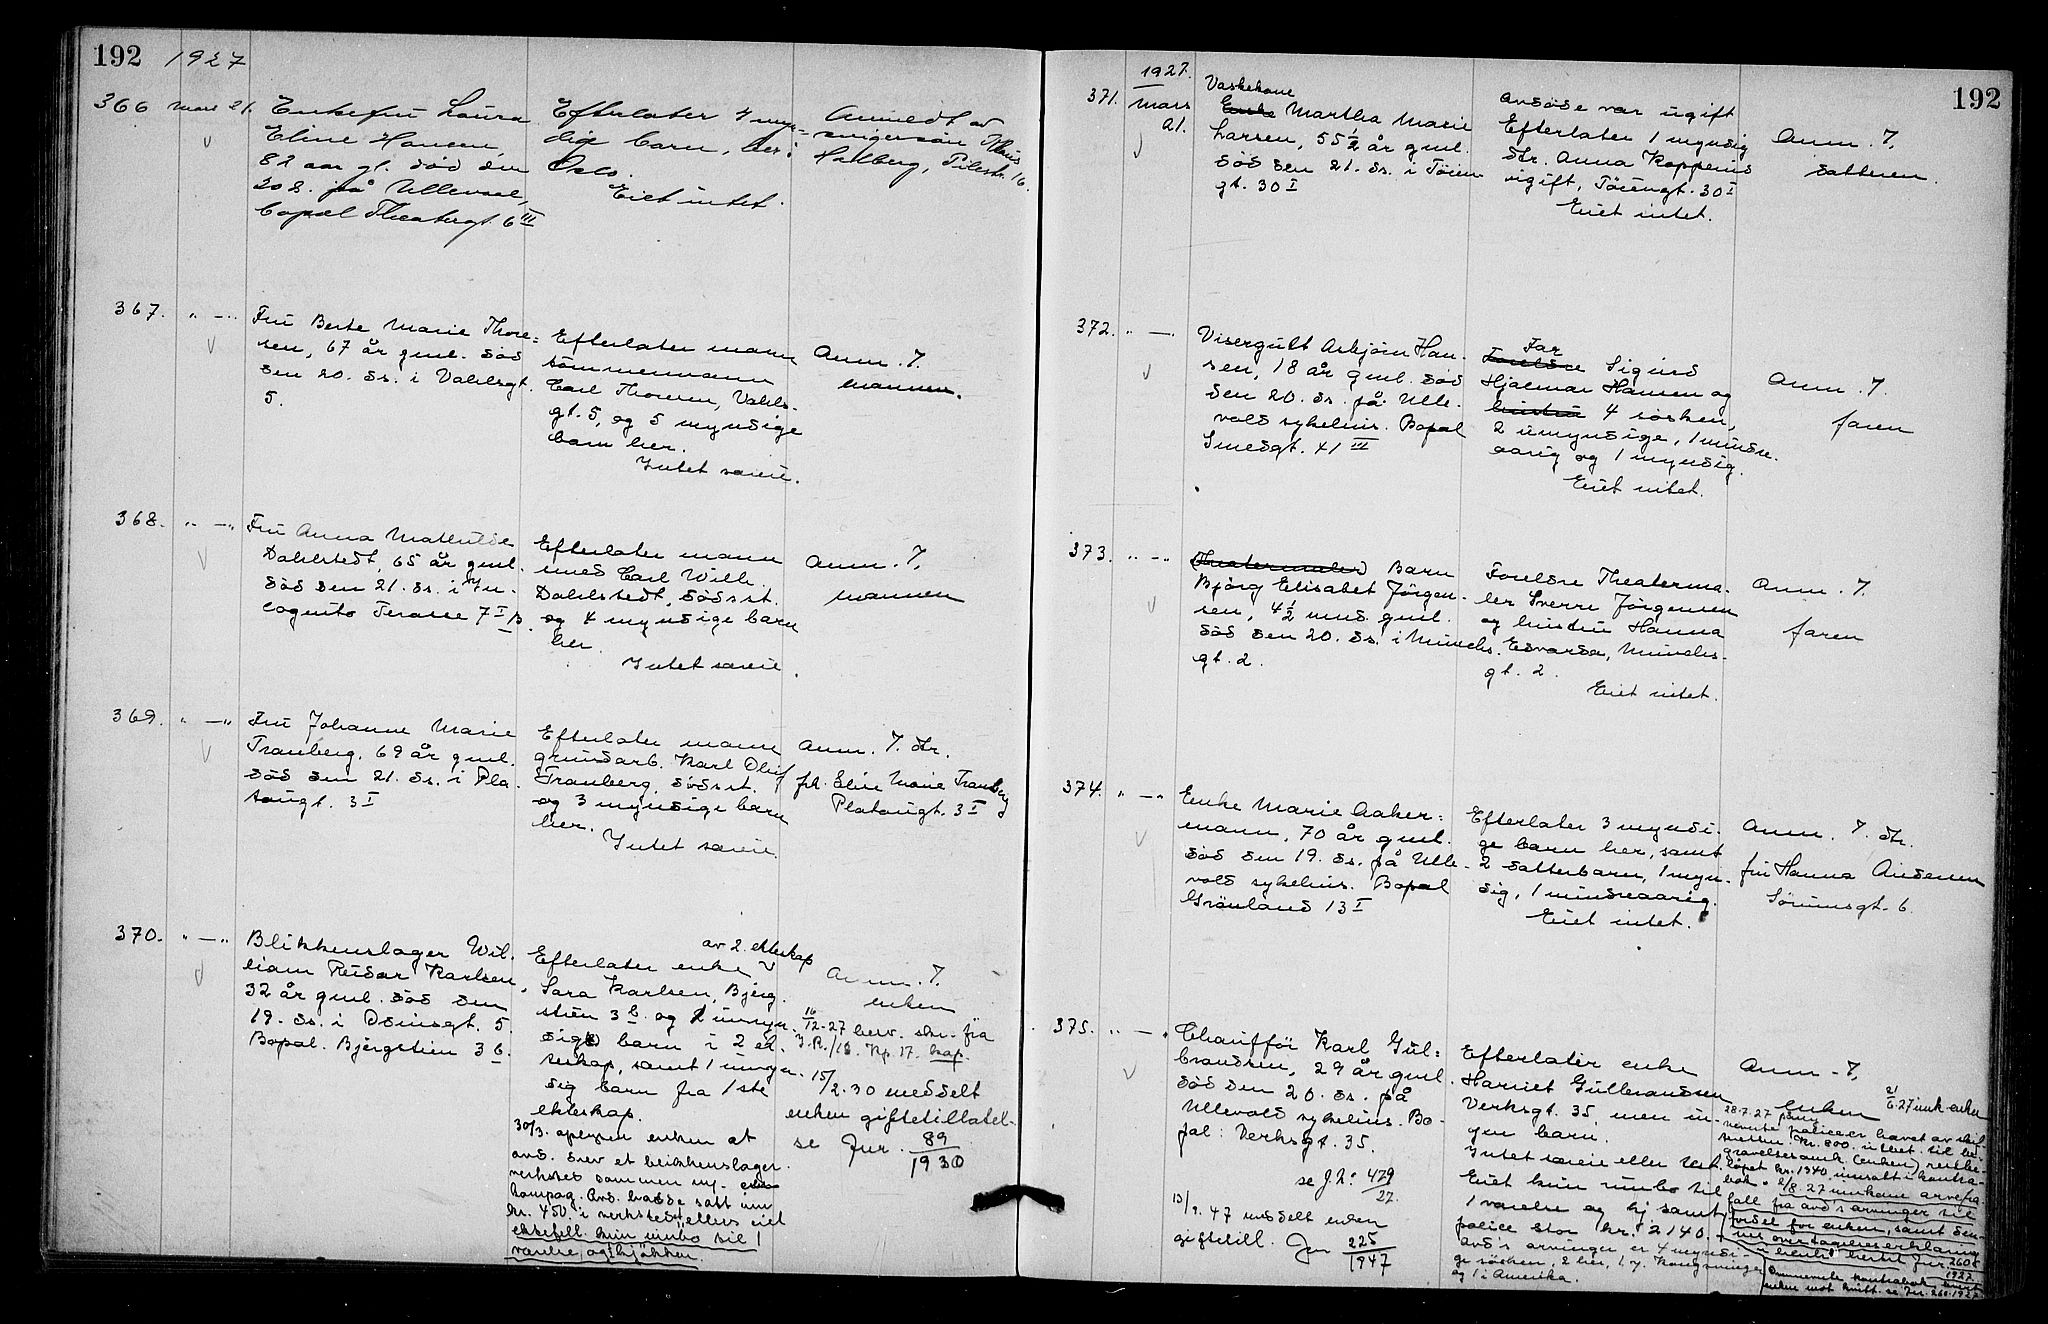 192 1927
366 Mars 21.
Enkefru Laura
Eline Hansen,
82 aar gl. död den
20 ds. på Ullevaal,
bopæl Theatergt. 6 III
Efterlater 4 myn-
dige barn, her i
Oslo.
Eiet intet.
Anmeldt av
svigersön
Halberg, Pilestr. 16.
367. " — "
Fru Berte Marie Thore=
sen, 67 år gml. död
den 20. ds. i Vahlsgt.
5.
Efterlater mann
tömmermann
Carl Thoresen, Vahls-
gt. 5, og 5 myndige
barn her.
Intet særeie.
Anm. 7.
mannen.
368. " — "
Fru Anna Mathilde
Dahlstedt, 65 år gml.
död den 21. ds. i In-
cognito Terasse 7 I B.
Efterlater mann
smed Carl Wilh.
Dahlstedt, dödsst.
og 4 myndige barn
her.
Intet særeie.
Anm. 7.
mannen
369. " — "
Fru Johanne Marie
Tranberg, 69 år gml.
död den 21. ds. i Pla-
tougt. 3 I
Efterlater mann
grundarb. Karl Oluf
Tranberg, dödsst.
og 3 myndige barn
her.
Intet særeie.
Anm. 7. dtr.
frk. Eline Marie Tranberg
Platougt. 3 I
370. " — "
Blikkenslager Wil-
liam Reidar Karlsen,
32 år gml. död den
19. ds. i Odinsgt. 5.
Bopæl. Bjergstien 3 b.
av 2. ekteskap
Efterlater enke
Sara Karlsen, Bjerg-
stien 3 b. og 1 umyn-
dig barn i 2 ek-
teskap, samt 1 umyn-
dig barn fra 1ste
ekteskap.
30/3. oplyser enken at
avd. drev et blikkenslager-
verksted sammen m.
kompag. Avd. hadde satt inn
kr. 450. i verkstedet ellers eiet
ektefell. kun innbo til 1
værelse og kjökken.
Anm. 7.
enken
16/12-27 berv. skr. fra
15/2.30 meddelt
enken giftetillatel-
se Jur. 89/1930
192
1927.
371. Mars
21.
Vaskekone
Enke Martha Marie
Larsen, 55 1/2 år gml.
död den 21. ds. i Töien-
gt. 30 I
Avdöde var ugift
Efterlater 1 myndig
dtr. Anna Kopperud
ugift, Töiengt. 30 I
Eiet intet.
Anm. 7.
datteren.
372. " — "
Visergutt Asbjörn Han-
sen, 18 år gml. död
den 20. ds. på Ulle-
vold sykehus. Bopæl
Smedgt. 41 III
Far
Foreldre Sigurd
Hjalmar Hansen og
hustru 4 sösken,
2 umyndige, 1 mindre-
aarig og 1 myndig.
Eiet intet.
Anm. 7.
faren
373. " — "
(Theatermaler) Barn
Björg Elisabet Jörgen-
sen, 4 1/2 mnd. gml.
död den 20. ds. i Munchs-
gt. 2.
Foreldre Theaterma-
ler Sverre Jörgensen
og hustru Hanna
Edvarda, Munchs-
gt. 2.
Eiet intet.
Anm. 7.
faren
374. " — "
Enke Marie Aaker=
mann, 70 år gml.
död den 19. ds. på Ulle-
vold sykehus. Bopæl
Grönland 13 I
Efterlater 3 myndi-
ge barn her, samt
2 datterbarn, 1 myn-
dig, 1 mindreaarig.
Eiet intet.
Anm. 7. dtr.
fru Hanna Andersen
Sörumsgt. 6.
375. " — "
Chaufför Karl Gul=
brandsen, 29 år gml.
död den 20. ds. på
Ullevold sykehus. Bo-
pæl: Verksgt. 35.
se J. N: 479/27.
13/9. 47 meddelt enken
giftetill. Jur 225/1947
Efterlater enke
Harriet Gulbrandsen
Verksgt. 35, men in-
gen barn.
Intet særeie eller test.
Eiet kun innbo til
1 værelse og kj samt
police stor kr. 2140.-
avd's arvinger er 4 myndi-
ge sösken, 2 her, 1 y. Kongsvinger
og 1 i Amerika.
Anm. 7.
enken
21/6.27 innk. enken
28.7.27
nevnte police er hævet av skif-
teretten kr. 800. utbet. til be-
gravelsesomk. (enken) restbe-
löpet kr. 1340 innsatt i kontra-
bok. 2/8.27 innkom arvefra-
fall fra avd's arvinger til
fordel for enken, samt den-
nes overtagelseserklæring
Jur. 2605/1927.
Ommeldte kontrabok
enken mot kvitt. se Jur. 260.1927